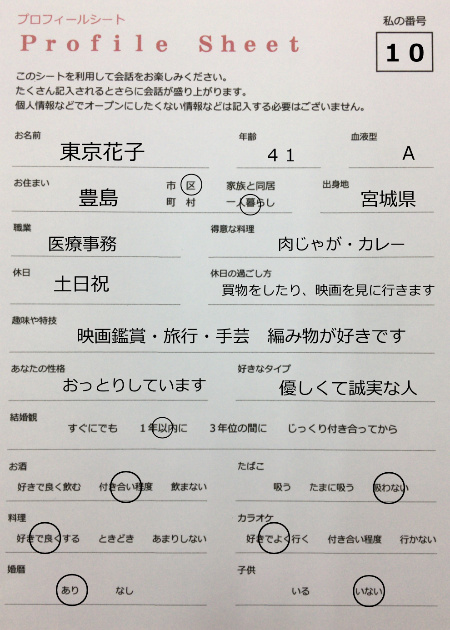 プロフィールシート
Profile Sheet
私の番号
10
このシートを利用して会話をお楽しみください。
たくさん記入されるとさらに会話が盛り上がります。
個人情報などでオープンにしたくない情報などは記入する必要はございません。
お名前 東京花子 年齢 41 血液型 A
お住まい 豊島 市 区 町 村 家族と同居 一人暮らし 出身地 宮城県
職業 医療事務 得意な料理 肉じゃが・カレー
休日 土日祝 休日の過ごし方 買物をしたり、映画を見に行きます
趣味や特技
映画鑑賞・旅行・手芸 編み物が好きです
あなたの性格 おっとりしています 好きなタイプ 優しくて誠実な人
結婚観
すぐにでも 1年以内に 3年位の間に じっくり付き合ってから
お酒 たばこ
好きで良く飲む 付き合い程度 飲まない 吸う たまに吸う 吸わない
料理 カラオケ
好きで良くする ときどき あまりしない 好きでよく行く 付き合い程度 行かない
婚暦 子供
あり なし いる いない